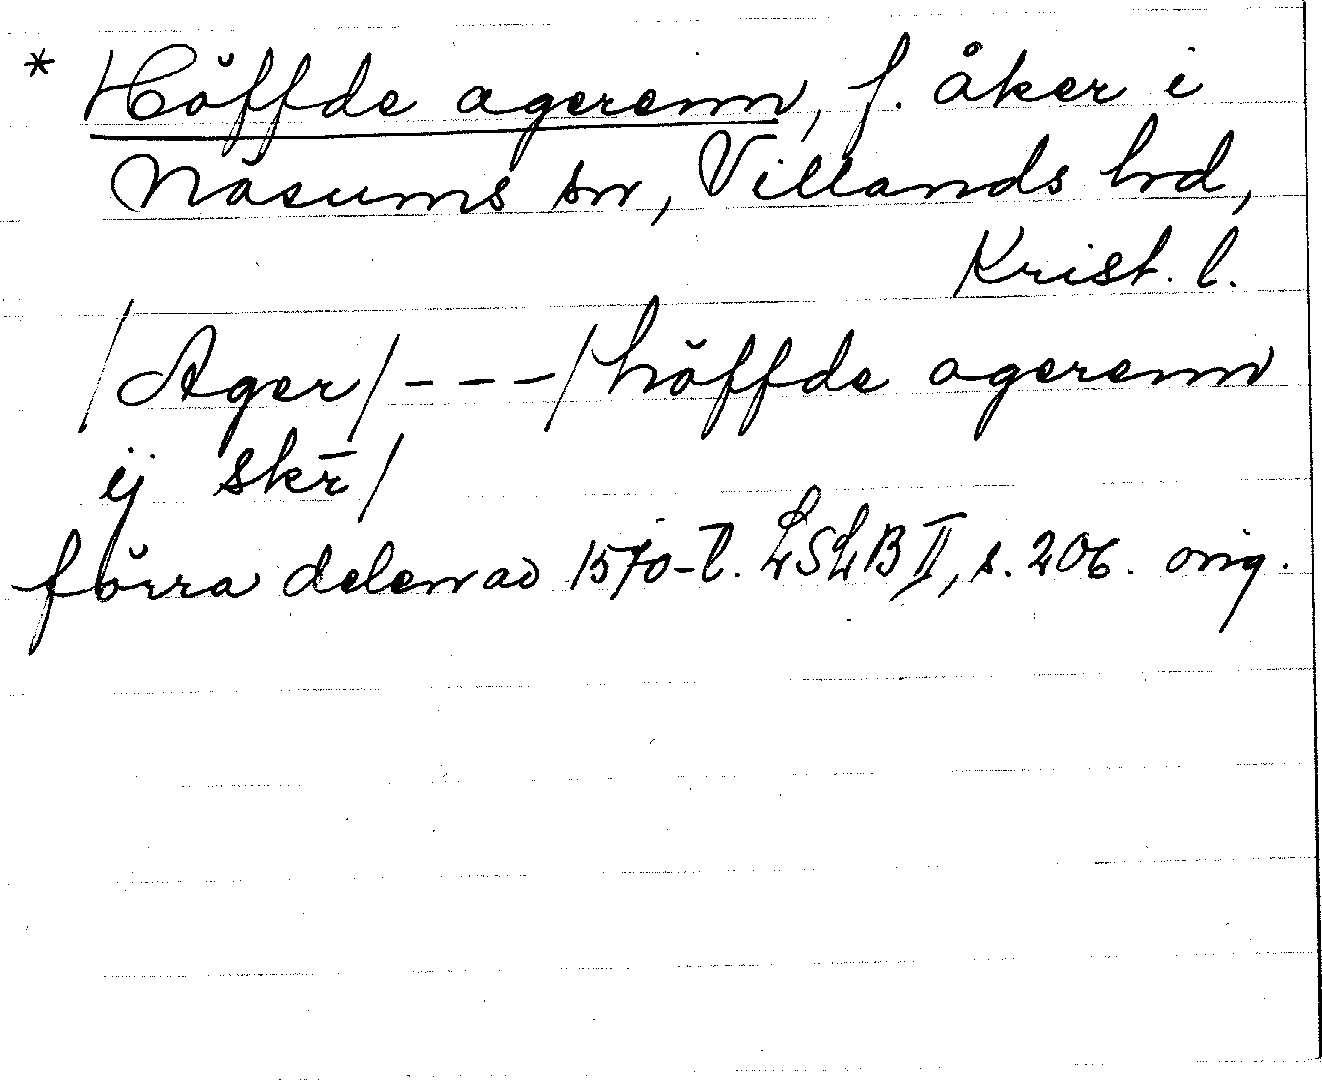 * Höffde agerenn, f. åker i
Näsums sn, Villands hd,
Krist. l.
/Ager/---/höffde agerenn
ij skr̄/
förra delen av 1570-t. LSLB II, s. 206. orig.